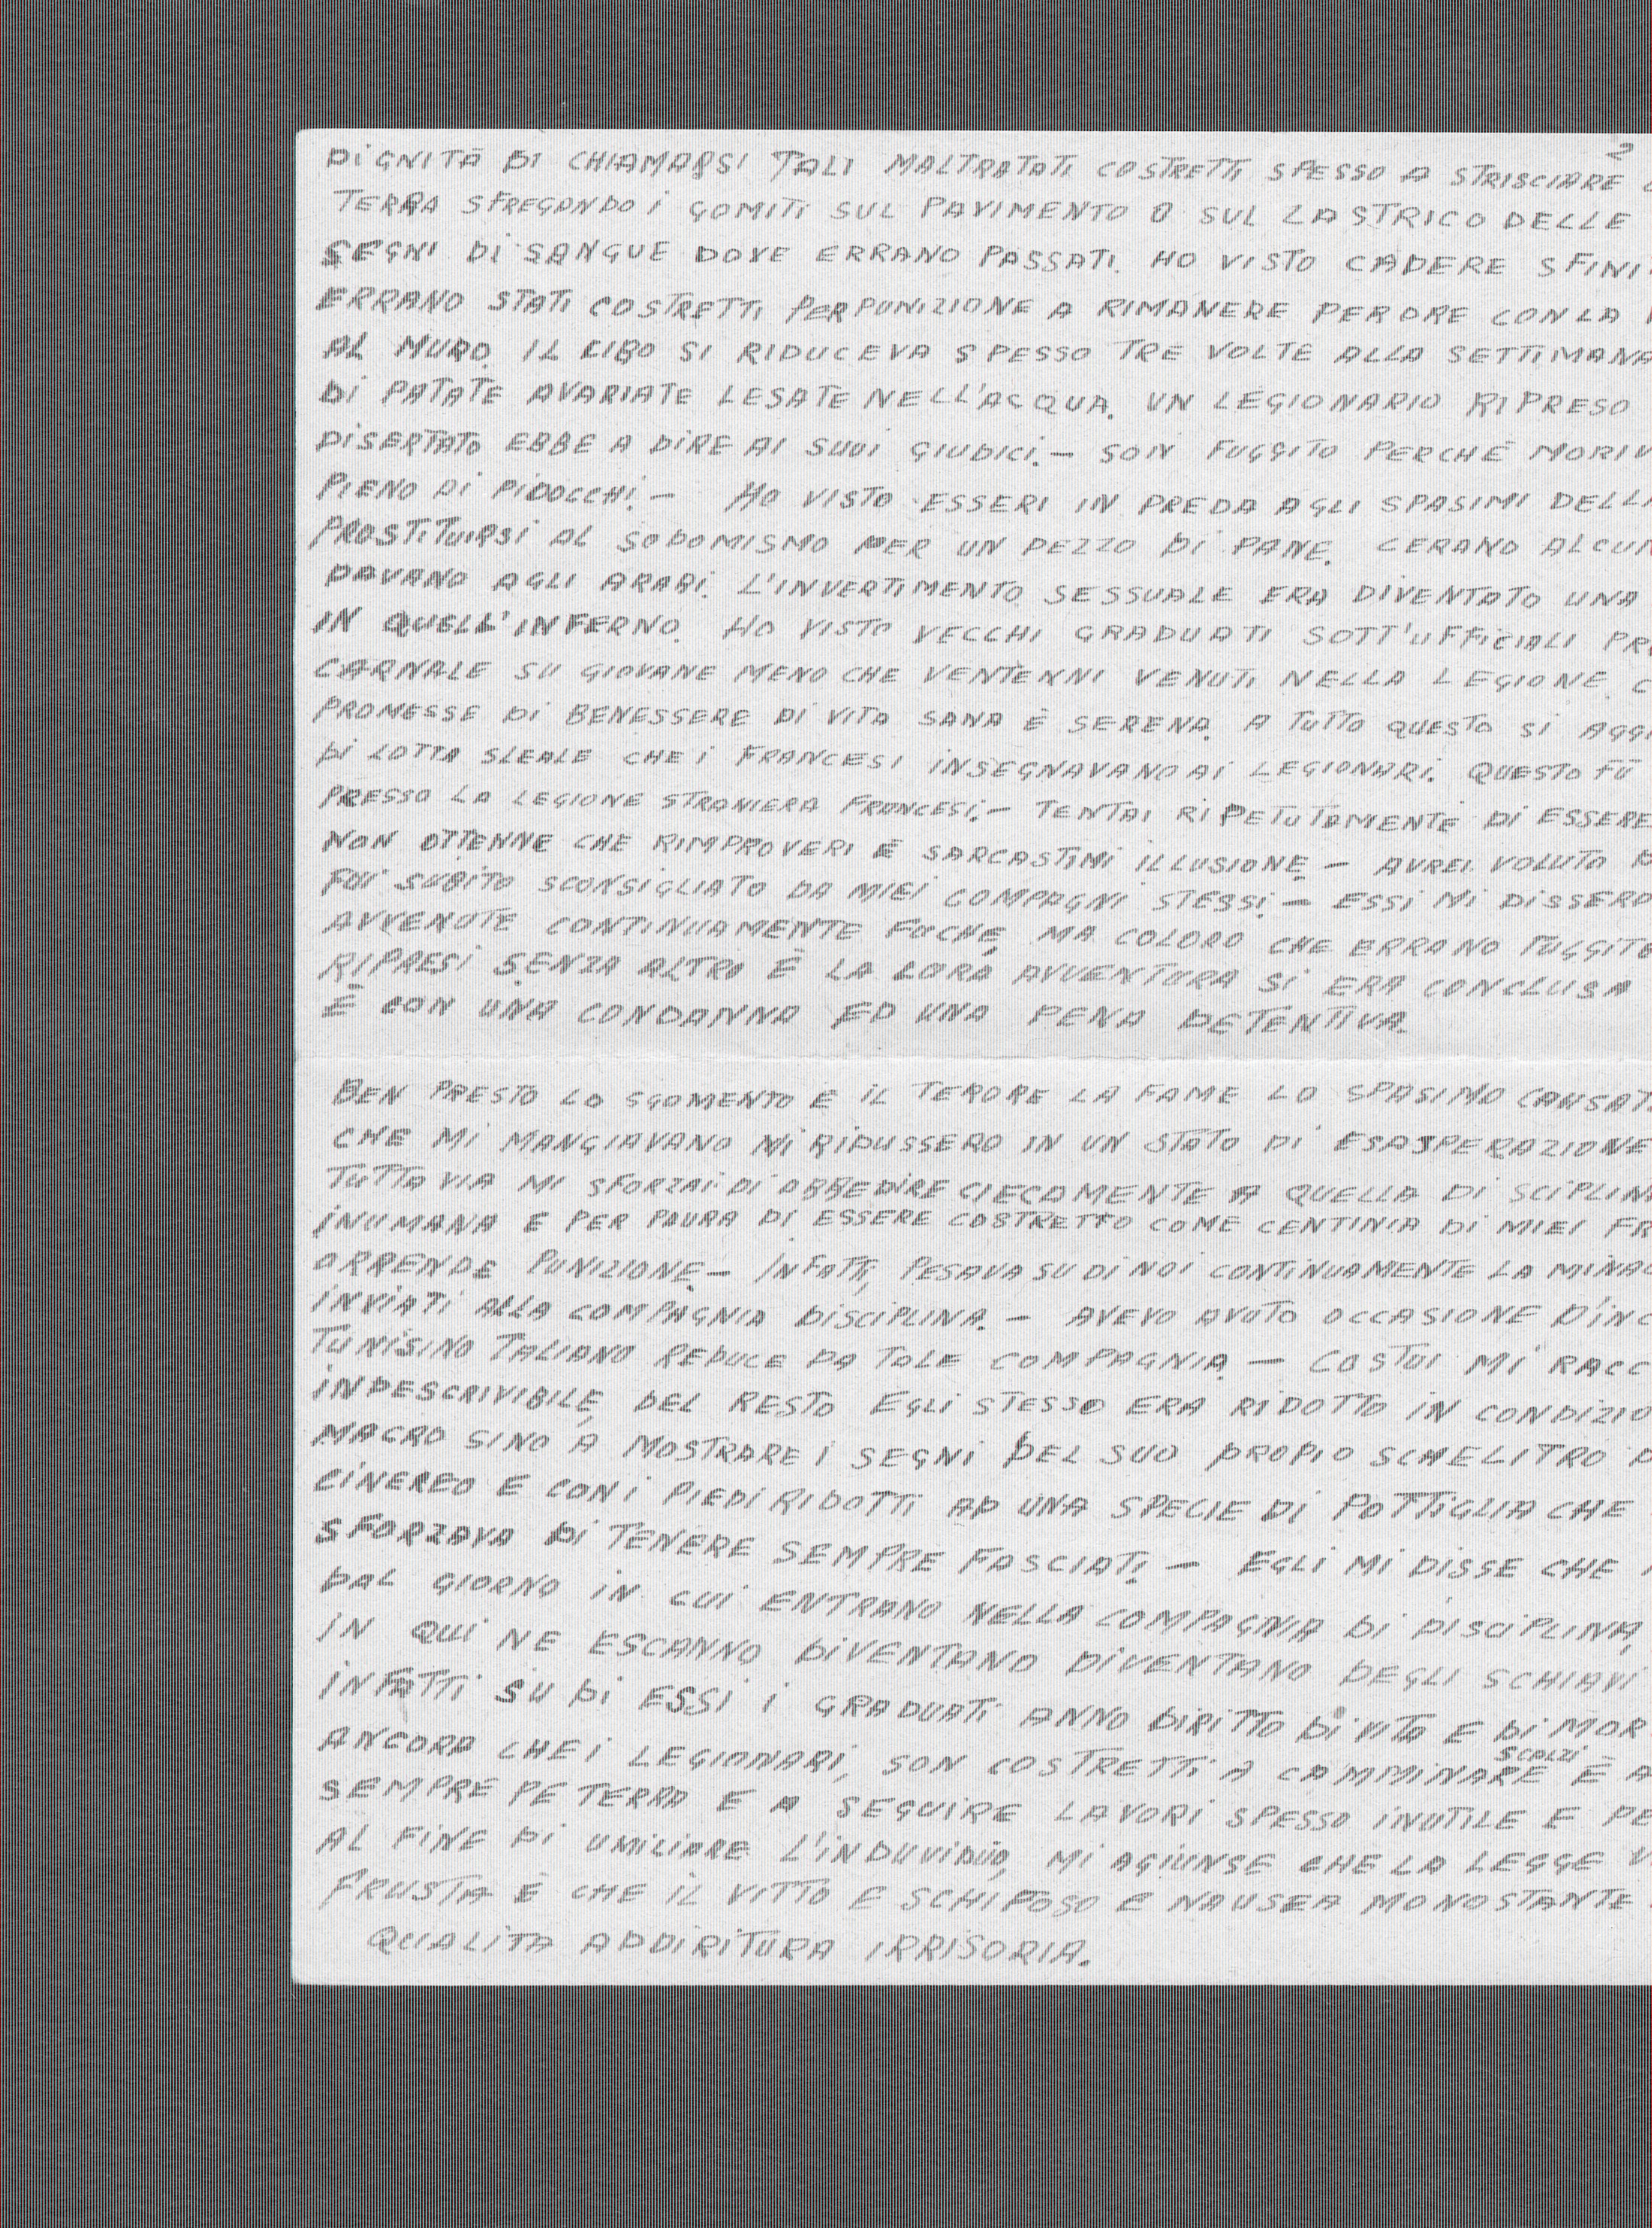 2
DIGNITÀ DI CHIAMARSI TALI MALTRATATI COSTRETTI SPESSO A STRISCIARE
TERRA SFREGANDO I GOMITI SUL PAVIMENTO O SUL LASTRICO DELLE
SEGNI DI SANGUE DOVE ERRANO PASSATI. HO VISTO CADERE SFINI
ERRANO STATI COSTRETTI PER PUNIZIONE A RIMANERE PER ORE CON LA
AL MURO. IL CIBO SI RIDUCEVA SPESSO TRE VOLTE ALLA SETTIMANA
DI PATATE AVARIATE LESATE NELL'ACQUA. UN LEGIONARIO RIPRESO
DISERTATO EBBE A DIRE AI SUOI GIUDICI. — SON FUGGITO PERCHÈ MORIV
PIENO DI PIDOCCHI. — HO VISTO ESSERI IN PREDA AGLI SPASIMI DELL
PROSTITUIRSI AL SODOMISMO PER UN PEZZO DI PANE. CERANO ALCUN
DAVANO AGLI ARABI. L'INVERTIMENTO SESSUALE ERA DIVENTATO UNA
IN QUELL'INFERNO. HO VISTO VECCHI GRADUATI SOTT'UFFICIALI PR
CARNALE SU GIOVANE MENO CHE VENTENNI VENUTI NELLA LEGIONE. C
PROMESSE DI BENESSERE DI VITA SANA È SERENA. A TUTTO QUESTO SI AGGI
DI LOTTA SLEALE CHE I FRANCESI INSEGNAVANO AI LEGIONARI. QUESTO FÙ
PRESSO LA LEGIONE STRANIERA FRANCESI. — TENTAI RIPETUTAMENTE DI ESSERE
NON OTTENNE CHE RIMPROVERI E SARCASTIMI ILLUSIONE. — AVREI VOLUTO
FUI SUBITO SCONSIGLIATO DA MIEI COMPAGNI STESSI. — ESSI MI DISSERO
AVVENUTE CONTINUAMENTE FUCHE, MA COLORO CHE ERRANO FUGGITE
RIPRESI SENZA ALTRO È LA LORA AVVENTURA SI ERA CONCLUSA
È CON UNA CONDANNA ED UNA PENA DETENTIVA.
BEN PRESTO LO SGOMENTO E IL TERORE LA FAME LO SPASIMO CAUSAT
CHE MI MANGIAVANO MI RIDUSSERO IN UN STATO DI ESASPERAZIONE
TUTTAVIA MI SFORZAI DI OBBEDIRE CIECAMENTE A QUELLA DISCIPLIN
INUMANA E PER PAURA DI ESSERE COSTRETTO COME CENTINIA DI MIEI FR
ORRENDE PUNIZIONE — INFATTI, PESAVA SU DI NOI CONTINUAMENTE LA MINAC
INVIATI ALLA COMPAGNIA DISCIPLINA. — AVEVO AVUTO OCCASIONE D'INC
TUNISINO TALIANO REDUCE DA TALE COMPAGNIA — COSTUI MI RACC
INDESCRIVIBILE, DEL RESTO EGLI STESSO ERA RIDOTTO IN CONDIZIO
MACRO SINO A MOSTRARE I SEGNI DEL SUO PROPIO SCHELITRO
CINEREO E CON I PIEDI RIDOTTI AD UNA SPECIE DI POTTIGLIA CHE
SFORZAVA DI TENERE SEMPRE FASCIATI. — EGLI MI DISSE CHE
DAL GIORNO IN CUI ENTRANO NELLA COMPAGNIA DI DISCIPLINA,
IN QUI NE ESCANNO DIVENTANO DIVENTANO DEGLI SCHIAVI
INFATTI SU DI ESSI I GRADUATI ANNO DIRITTO DI VITA E DI MOR
ANCORA CHE I LEGIONARI, SON COSTRETTI A CAMMINARE SCALZI È A
SEMPRE PE TERRA E A SEGUIRE LAVORI SPESSO INUTILE E PE
AL FINE DI UMILIARE L'INDUVIDUO, MI AGIUNSE CHE LA LEGGE V
FRUSTA È CHE IL VITTO E SCHIFOSO E NAUSEA MONOSTANTE
QUALITA ADDIRITURA IRRISORIA.